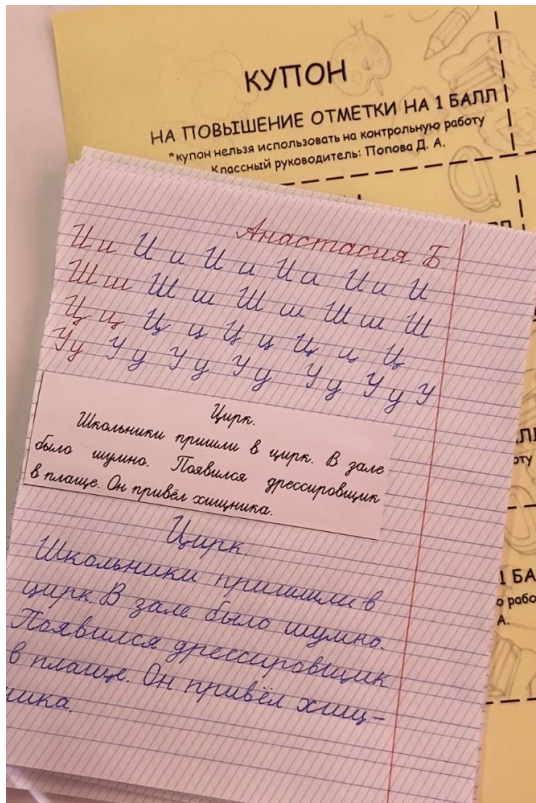 КУПОН
НА ПОВЫШЕНИЕ ОТМЕТКИ НА 1 БАЛЛ
*купон нельзя использовать на контрольную работу
Классный руководитель: Попова Д. А.
Анастасия Б
И и И и И и И и И и И
Ш ш Ш ш Ш ш Ш ш Ш
Ц ц Ц ц Ц ц Ц ц Ц
У у У у У у У у У у У у У
Цирк.
Школьники пришли в цирк. В зале
было шумно. Появился дрессировщик
в плаще. Он привёл хищника.
Цирк
Школьники пришли в
цирк. В зале было шумно.
Появился дрессировщик
в плаще. Он привёл хищ-
ника.
1 БА
А.